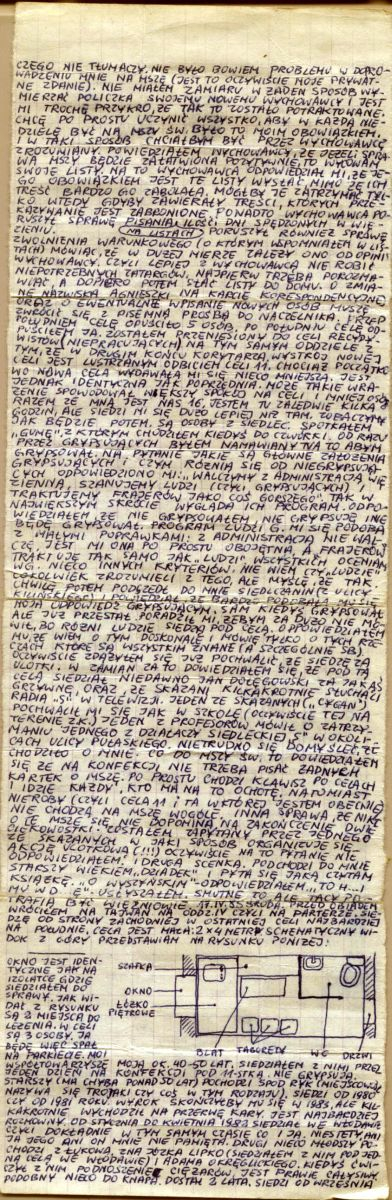 CZEGO NIE TŁUMACZY. NIE BYŁO BOWIEM PROBLEMU W DOPRO-
WADZENIU MNIE NA MSZĘ (JEST TO OCZYWIŚCIE MOJE PRYWAT-
NE ZDANIE). NIE MIAŁEM ZAMIARU W ŻADEN SPOSÓB WY-
MIERZAĆ POLICZKA SWOJEMU NOWEMU WYCHOWAWCY I JEST
MI TROCHĘ PRZYKRO, ŻE TAK TO ZOSTAŁO POTRAKTOWANE.
CHCĘ PO PROSTU UCZYNIĆ WSZYSTKO, ABY W KAŻDĄ NIE-
DZIELĘ BYĆ NA MSZY ŚW. BYŁO TO MOIM OBOWIĄZKIEM
I W TAKI SPOSÓB CHCIAŁBYM BYĆ PRZEZ WYCHOWAWCĘ
ZROZUMIANY. POWIEDZIAŁEM WYCHOWAWCY, ŻE JEŻELI SPRA-
WA MSZY BĘDZIE ZAŁATWIONA POZYTYWNIE, TO WYCOFAM
SWOJE LISTY. NA TO WYCHOWAWCA ODPOWIEDZIAŁ MI, ŻE JE-
GO OBOWIĄZKIEM JEST TE LISTY WYSŁAĆ MIMO, ŻE ICH
TREŚĆ BARDZO GO ZABOLAŁA, MÓGŁBY JE ZATRZYMAĆ TYL-
KO WTEDY GDYBY ZAWIERAŁY TREŚCI, KTÓRYCH PRZE-
KAZYWANIE JEST ZABRONIONE. PONADTO WYCHOWAWCA PO-
RUSZYŁ SPRAWĘ PISANIA ILOŚCI DNI SPĘDZONYCH W WIĘ-
ZIENIU. NA LISTACH PORUSZYŁ RÓWNIEŻ SPRAWĘ
ZWOLNIENIA WARUNKOWEGO (O KTÓRYM WSPOMNIAŁEM W LIS-
TACH) MÓWIĄC, ŻE W DUŻEJ MIERZE ZALEŻY ONO OD OPINII
WYCHOWAWCY, CZYLI LEPIEJ Z WYCHOWAWCĄ NIE ROBIĆ
NIEPOTRZEBNYCH ZATARGÓW, NAJPIERW TRZEBA POROZMA-
WIAĆ, A DOPIERO POTEM SŁAĆ LISTY DO DOMU. O ZMIA-
NĘ NAZWISKA AGNIESZKI NA KARCIE KORESPONDENCYJNEJ
ORAZ O EWENTUALNE WPISANIE NOWYCH OSÓB MUSZĘ
ZWRÓCIĆ SIĘ Z PISEMNĄ PROŚBĄ DO NACZELNIKA. PRZED
POŁUDNIEM CELĘ OPUŚCIŁO 5 OSÓB, PO POŁUDNIU CELĘ O-
PUŚCIŁEM JA. ZOSTAŁEM PRZENIESIONY DO CELI RECYDY-
WISTÓW (NIEPRACUJĄCYCH) NA TYM SAMYM ODDZIALE Z
TYM, ŻE W DRUGIM KOŃCU KORYTARZA, WYSTRÓJ NOWEJ
CELI JEST LUSTRZANYM ODBICIEM CELI 11. CHOCIAŻ POCZĄTKO-
WO NOWA CELA WYDAWAŁA MI SIĘ NIECO MNIEJSZA. JEST
JEDNAK IDENTYCZNA JAK POPRZEDNIA. MOŻE TAKIE WRA-
ŻENIE SPOWODOWAŁ WIĘKSZY SPOKÓJ NA CELI I MNIEJ OSÓB.
RAZEM ZE MNĄ JEST NAS 16. JESTEM TU ZALEDWIE KILKA
GODZIN, ALE SIEDZI MI SIĘ DUŻO LEPIEJ NIŻ TAM. ZOBACZYMY
JAK BĘDZIE POTEM. SĄ OSOBY Z SIEDLEC. SPOTKAŁEM
"GUNĘ", Z KTÓRYM CHODZIŁEM KIEDYŚ DO CZWÓRKI. OD RAZU
PRZEZ GRYPSUJĄCYCH BYŁEM NAMAWIANY NA TO ABYM
GRYPSOWAŁ. NA PYTANIE JAKIE SĄ GŁÓWNE ZAŁOŻENIA
GRYPSUJĄCYCH I CZYM RÓŻNIĄ SIĘ OD NIEGRYPSUJĄ-
CYCH ODPOWIEDZIONO MI: "WALCZYMY Z ADMINISTRACJĄ WIĘ-
ZIENNĄ, SZANUJEMY LUDZI (CZYLI GRYPSUJĄCYCH) A
TRAKTUJEMY FRAJERÓW JAKO COŚ GORSZEGO". TAK W
NAJWIĘKSZYM SKRÓCIE WYGLĄDA ICH PROGRAM. ODPO-
WIEDZIAŁEM, ŻE NIE GRYPSOWAŁEM, NIE GRYPSUJĘ I NIE
BĘDĘ GRYPSOWAŁ. PROGRAM LUDZI G. MI SIĘ PODOBA
Z MAŁYMI POPRAWKAMI: Z ADMINISTRACJĄ NIE WAL-
CZĘ, JEST MI ONA PO PROSTU OBOJĘTNA, A FRAJERÓW
TRAKTUJĘ TAK SAMO JAK "LUDZI". WSZYSTKICH OCENIAM
WG. NIECO INNYCH KRYTERIÓW. NIE WIEM CZY "LUDZIE"
COKOLWIEK ZROZUMIELI Z TEGO, ALE MYSLĘ, ŻE TAK.
CHWILĘ POTEM PODSZEDŁ DO MNIE SIEDLCZANIN Z ULICY
KILIŃSKIEGO I POWIEDZIAŁ, ŻE BARDZO PODOBAŁA MU SIĘ
MOJA ODPOWIEDŹ GRYPSUJĄCYM. SAM KIEDYŚ GRYPSOWAŁ
ALE JUŻ PRZESTAŁ. PORADZIŁ MI, ŻEBYM ZA DUŻO NIE MÓ-
WIŁ, BO RÓŻNI LUDZIE SIEDZĄ POD CELĄ. ODPOWIEDZIAŁEM
MU, ŻE WIEM O TYM DOSKONALE I MÓWIĘ TYLKO O TYCH RZE-
CZACH KTÓRE SĄ WSZYSTKIM ZNANE (A SZCZEGÓLNIE SB).
OCZYWIŚCIE ZDĄŻYŁEM SIĘ JUŻ POCHWALIĆ, ŻE SIEDZĘ ZA
ULOTKI. W ZAMIAN ZA TO DOWIEDZIAŁEM SIĘ, ŻE POD TĄ
CELĄ SIEDZIAŁ NIEDAWNO JAN DOŁĘGOWSKI ZA JAKĄŚ
GRZYWNĘ ORAZ, ŻE SKAZANI KILKAKROTNIE SŁUCHALI
RADIA "S" W TELEWIZJI. JEDEN ZE SKAZANYCH ("CYGAN")
POCHWALIŁ MI SIĘ JAK W SZKOLE (OCZYWIŚCIE TEJ NA
TERENIE Z.K.) JEDEN Z PROFESORÓW MÓWIŁ O ZATRZY-
MANIU JEDNEGO Z DZIAŁACZY SIEDLECKIEJ "S" W OKOLI-
CACH ULICY PUŁASKIEGO. NIETRUDNO SIĘ DOMYŚLEĆ, ŻE
CHODZIŁO O MNIE. CO DO MSZY ŚW. TO DOWIEDZIAŁEM
SIĘ ŻE NA KONFEKCJI NIE TRZEBA PISAĆ ŻADNYCH
KARTEK O MSZĘ. PO PROSTU CHODZI KLAWISZ PO CELACH
I IDZIE KAŻDY, KTO MA NA TO OCHOTĘ. NATOMIAST
NIEROBY (CZYLI CELA 11 I TA W KTÓREJ JESTEM OBECNIE)
NIE CHODZĄ NA MSZĘ WOGÓLE. INNA SPRAWA, ŻE NIKT
O TE MSZE SIĘ NIE UPOMINA. NA ZAKOŃCZENIE DWIE
CIEKAWOSTKI: ZOSTAŁEM ZAPYTANY PRZEZ JEDNEGO
ZE SKAZANYCH W JAKI SPOSÓB ORGANIZUJE SIĘ
AKCJĘ ULOTKOWĄ (!!!) OCZYWIŚCIE NA TO PYTANIE NIE
ODPOWIEDZIAŁEM. I DRUGA SCENKA. PODCHODZI DO MNIE
STARSZY WIEKIEM "DZIADEK" I PYTA SIĘ JAKĄ CZYTAM
KSIĄŻKĘ. "O WYSZYŃSKIM" - ODPOWIEDZIAŁEM. "TO H...I
MU W D...Ę" USŁYSZAŁEM. SMUTNE TO ALE TACY PO-
TRAFIĄ BYĆ WIĘŹNIOWIE. 17.IV.85 ŚRODA. PRZED OBIADEM
WRÓCIŁEM NA TAJWAN NA ODDZ. IV CZYLI NA PARTERZE. SIE-
DZĘ OD STRONY ZACHODNIEJ W OSTATNIEJ CELI NAJBARDZIEJ
NA POŁUDNIE. CELA JEST MAŁA: 2 x 4 METRY. SCHEMATYCZNY WI-
DOK Z GÓRY PRZEDSTAWIAM NA RYSUNKU PONIŻEJ:
OKNO JEST IDEN-
TYCZNE JAK NA
IZOLATCE GDZIE
SIEDZIAŁEM DO
SPRAWY. JAK WI-
DAĆ Z RYSUNKU
SĄ 2 MIEJSCA DO
LEŻENIA. W CELI
SĄ 3 OSOBY. JA
BĘDĘ WIĘC SPAŁ
NA PARKIECIE. MOI
SZAFKA
OKNO
ŁÓŻKO
PIĘTROWE
BLAT TABORETY WC DRZWI
WSPÓŁTOWARZYSZE MAJĄ OK. 40-50 LAT. SIEDZIAŁEM Z NIMI PRZEZ
JEDEN DZIEŃ NA KONFEKCJI POD 11-STKĄ. NIE GRYPSUJĄ.
STARSZY (MA CHYBA PONAD 50 LAT) POCHODZI SPOD RYK (MIEJSCOWOŚĆ
NAZYWA SIĘ TROJKI CZY COŚ W TYM RODZAJU). SIEDZI OD 1980
CZY OD 1981 ROKU. WYROK SKOŃCZYŁBY MU SIĘ W 1984, ALE KIL-
KAKROTNIE WYCHODZIŁ NA PRZERWĘ KARY. JEST NAJBARDZIEJ
ROZMOWNY. OD STYCZNIA DO KWIETNIA 1983 SIEDZIAŁ WE WŁODAWIE
CZYLI DOKŁADNIE W TYM SAMYM CZASIE CO I JA. NIESTETY, ANI
JA JEGO ANI ON MNIE NIE PAMIĘTA. DRUGI NIECO MŁODSZY PO-
CHODZI Z ŁUKOWA, ZNA JÓZKA LIPKO (SIEDZIAŁEM Z NIM POD JED-
NĄ CELĄ WE WŁODAWIE) I ADAMA OKRĘGLICKIEGO. KIEDYŚ ĆWI-
CZYŁ Z NIM PODNOSZENIE CIĘŻARÓW, JEST PRAWIE CAŁY SIWY
PODOBNY NIECO DO KNAPA. DOSTAŁ 2 LATA. SIEDZI OD WRZEŚNIA